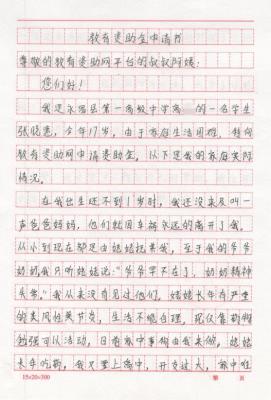 教育资助金申请书
尊敬的教育资助网平台的叔叔阿姨：
您们好！
我是永昌县第一高级中学高 的一名学生
张晓惠，今年17岁，由于家庭生活困难，特向
教育资助网申请资助金，以下是我的家庭实际
情况。
在我出生还不到1岁时，我还没来及叫一
声爸爸妈妈，他们就因车祸永远的离开了我。
从小到现在都是由姥姥抚养我，至于我的爷爷
奶奶我只听姥姥说：“爷爷早不在了，奶奶精神
失常。”我从来没有见过他们。姥姥长年有严重
的类风湿关节炎，生活不能自理，现仅靠药物
勉强可以活动，日常家中事物由我来做。姥姥
长年吃药，我又要上高中，开支过大，家中唯
15×20=300
第 页